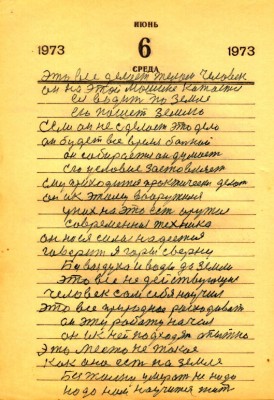 ИЮНЬ
1973 6 1973
СРЕДА
Это все делает человек
он на этой машине катается
ее водит по земле
ею пашет землю
Если он не сделает это дело
он будет все время
он собирается он думает
его условие заставляет
ему приходится практически делать
он и к этому вооружился
у них на это есть орудия
современная техника
он на себя надеется
говорит я горы сверну
Без воздуха и воды да земли
это все не действующее
человек сам себя научил
это все природное расходовать
он эту работу начал
он и к ней подходит опытно
Это место не такое
как она есть на земле
Бы жилому умирать не надо
надо нам научиться жить